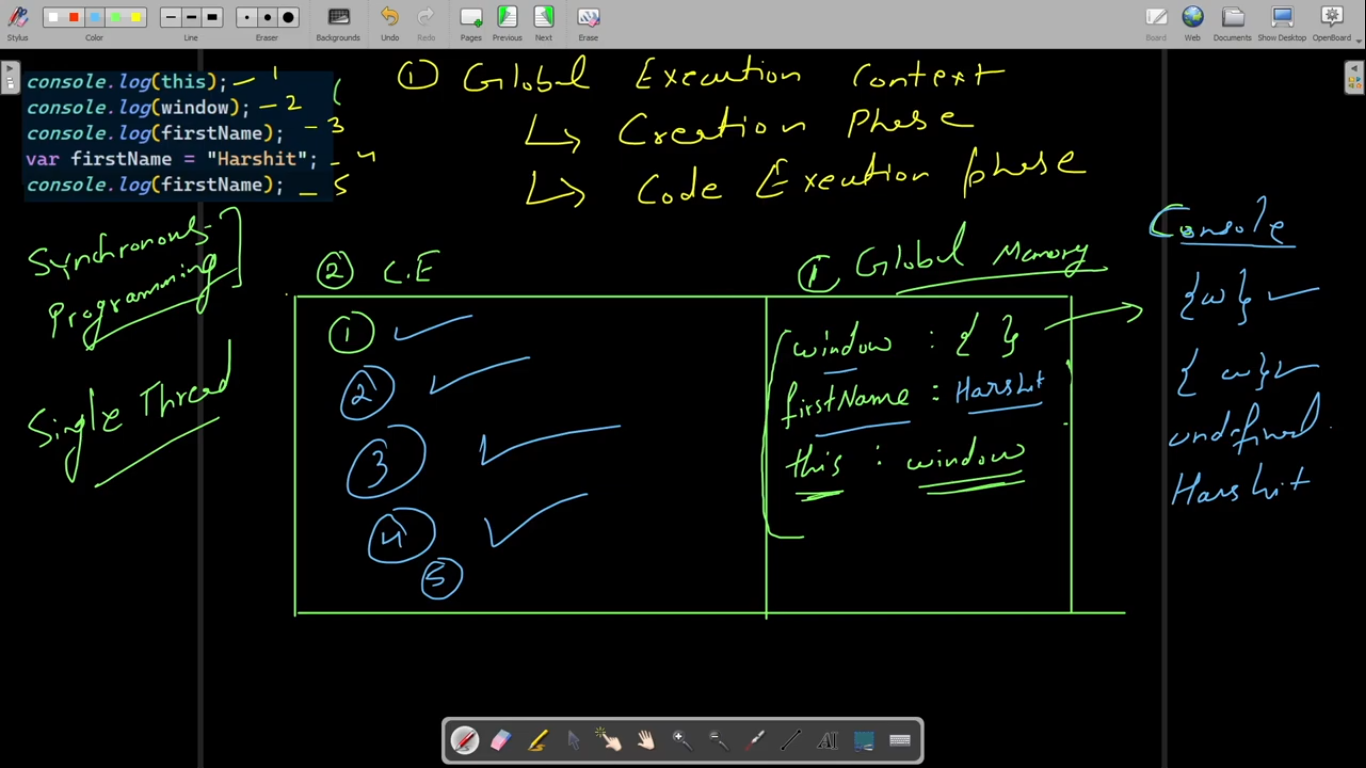 Stylus
Color
Line
Eraser
Backgrounds
Undo
Redo
Pages
Previous
Next
Erase
Board
Web
Documents
Show Desktop
OpenBoard
console.log(this); - 1
console.log(window); - 2
console.log(firstName); - 3
var firstName = "Harshit"; - 4
console.log(firstName); - 5
① Global Execution Context
↳ Creation Phase
↳ Code Execution phase
Synchronous
Programming
Single Thread
② C.E
① ✓
② ✓
③ ✓
④ ✓
⑤
① Global Memory
window : { }
firstName : Harshit
this : window
Console
{w} ✓
{w} ✓
undefined.
Harshit